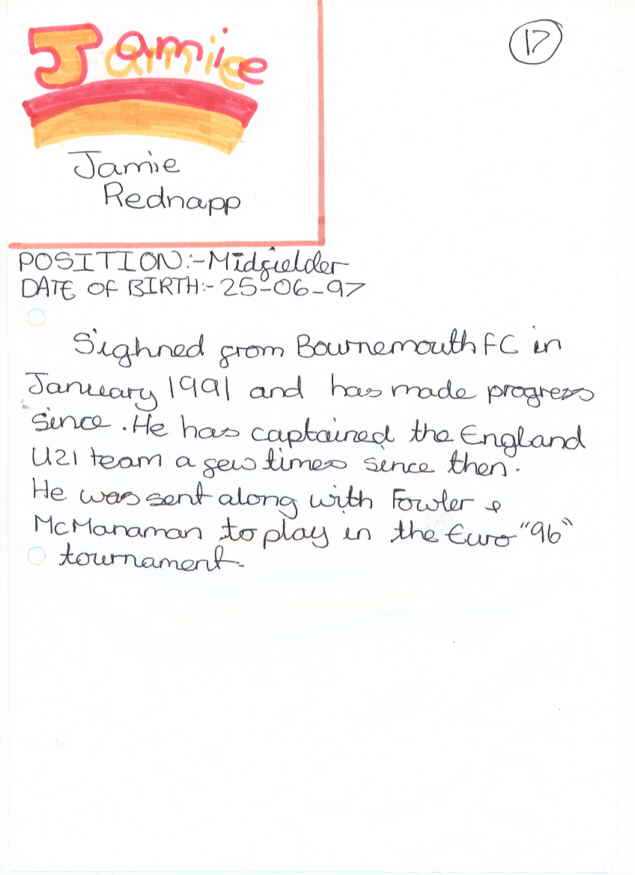 Jamie
17
Jamie
Rednapp
POSITION:-Midfielder
DATE OF BIRTH:- 25-06-97
Sighned from Bournemouth FC in
January 1991 and has made progress
since. He has captained the England
U21 team a few times since then.
He was sent along with Fowler &
McManaman to play in the Euro "96"
tournament.